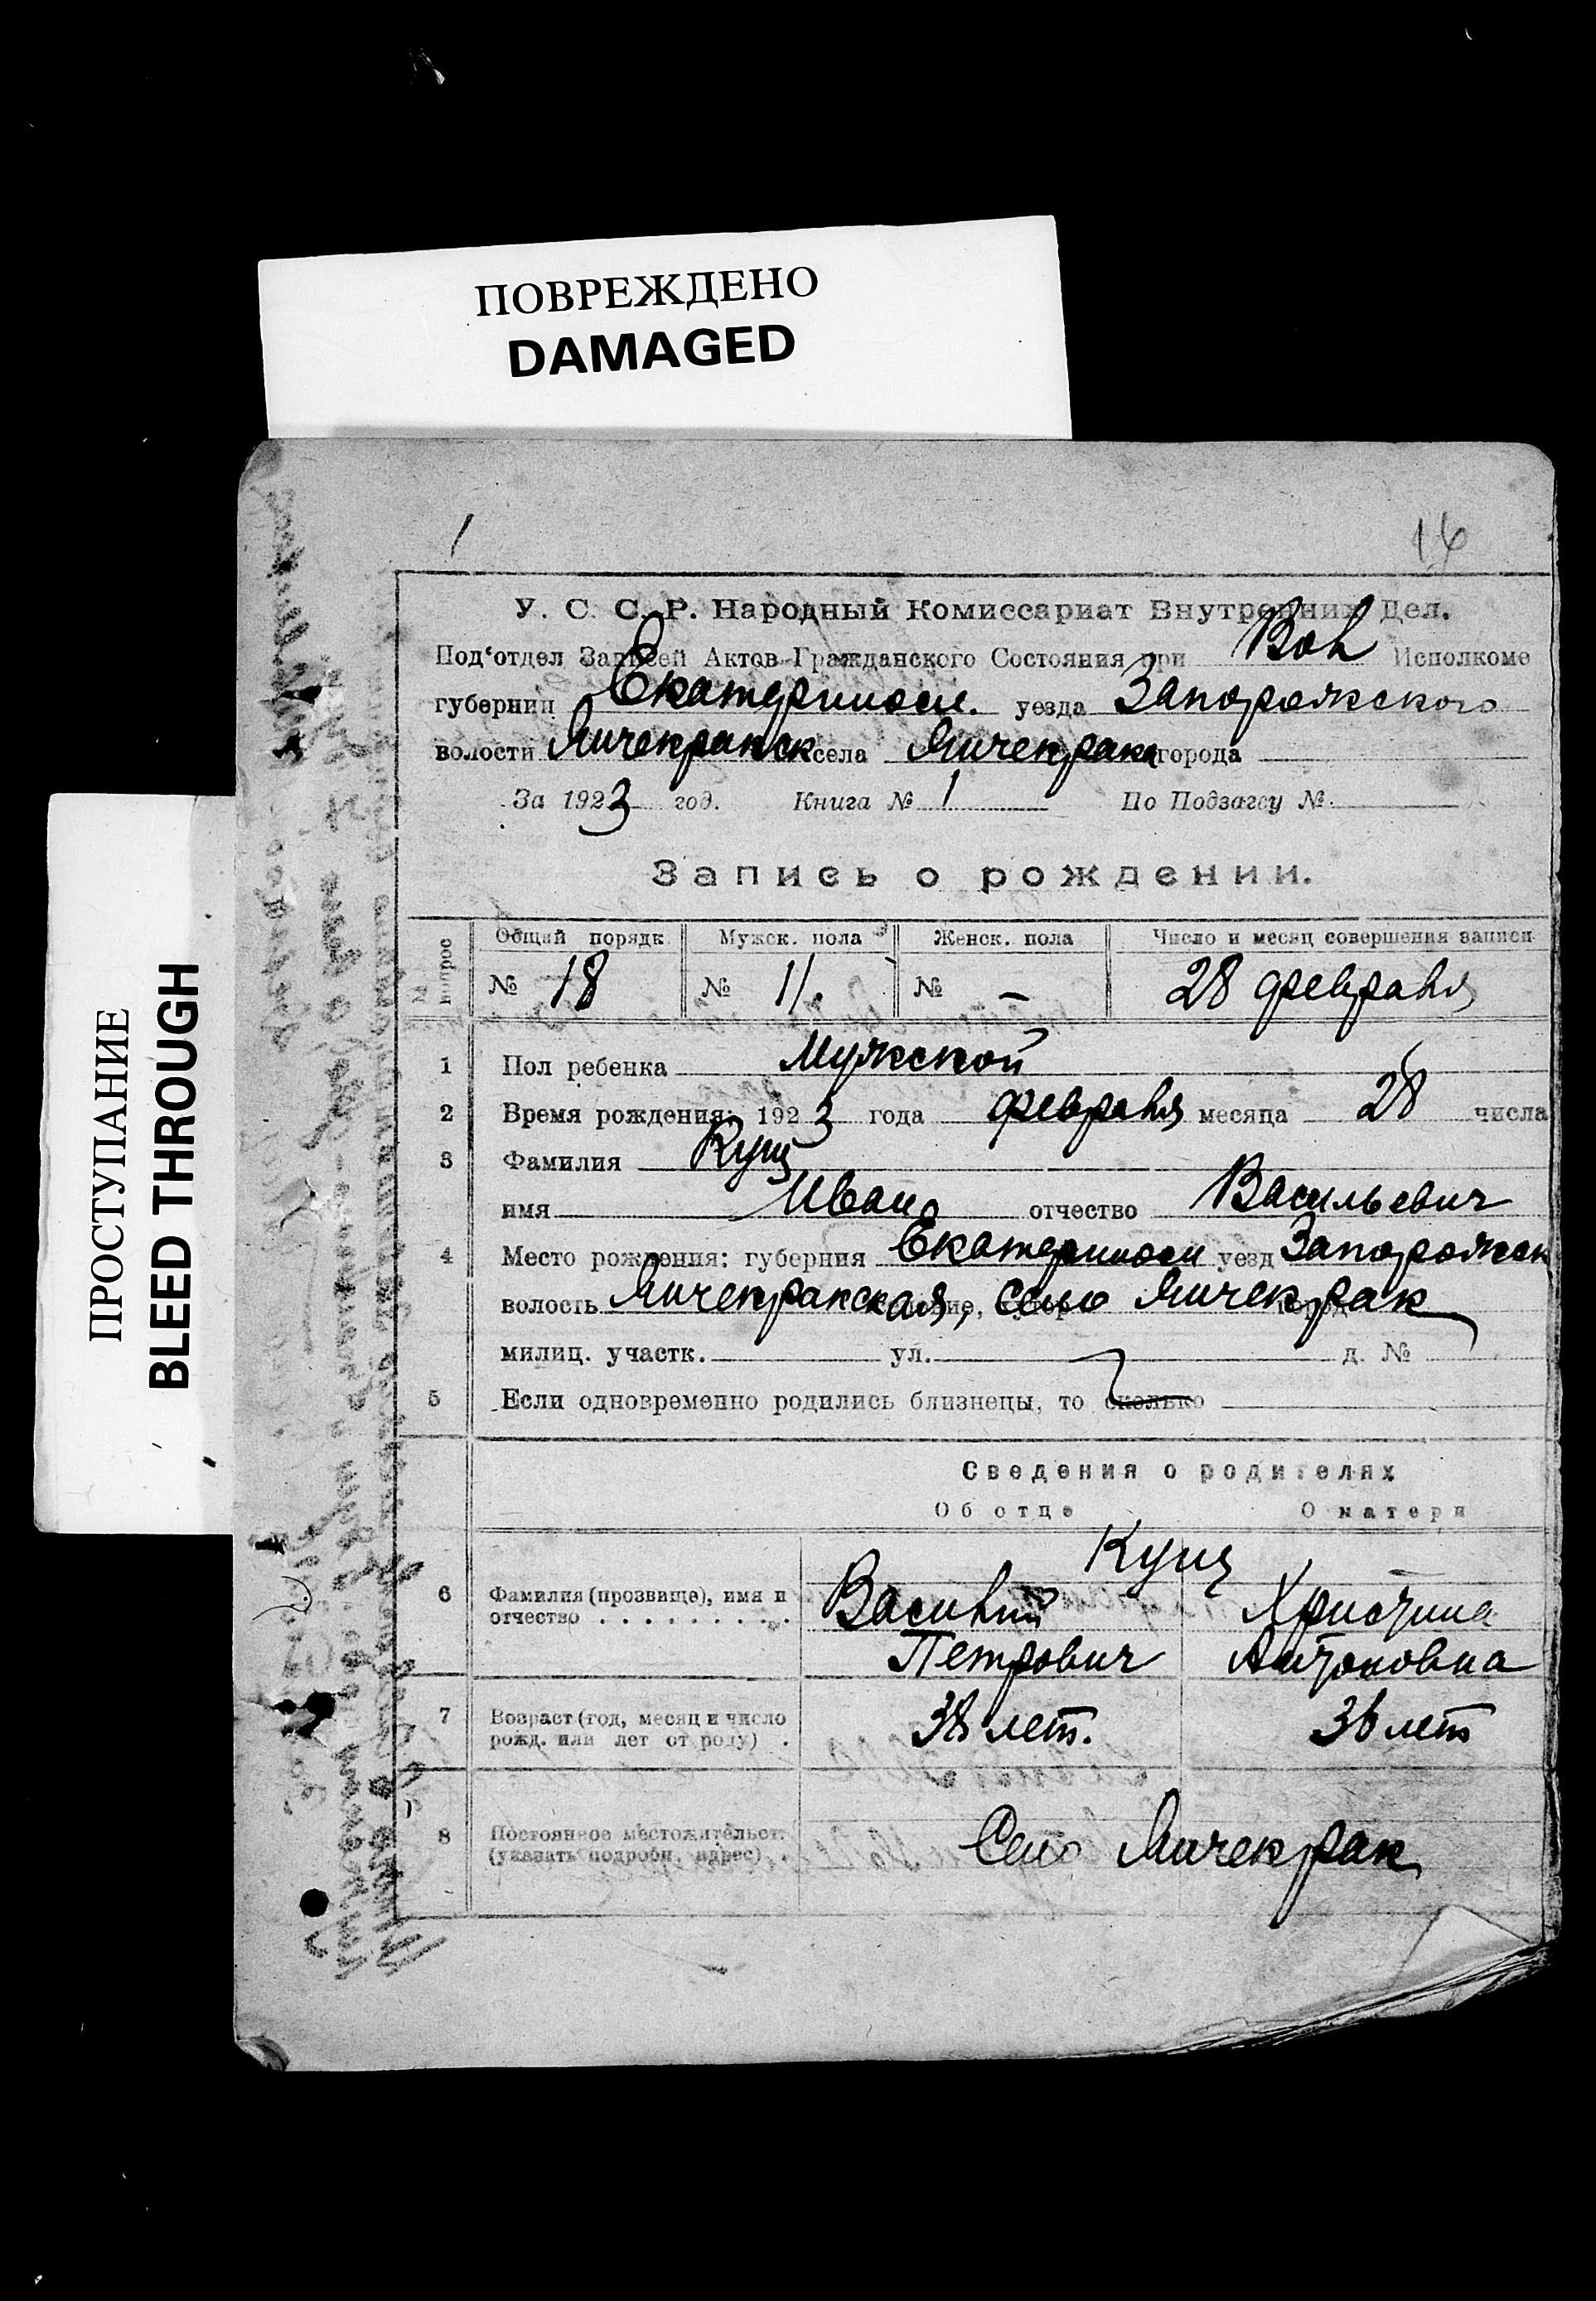 ПОВРЕЖДЕНО
DAMAGED
ПРОСТУПАНИЕ
BLEED THROUGH
1
16
У. С. С. Р. Народный Комиссариат Внутренних Дел.
Под‘отдел Записей Актов Гражданского Состояния при Вол Исполкоме
губернии Екатериносл. уезда Запорожского
волости Янчекракск села Янчекрака города
За 1923 год. Книга № 1 По Подзагсу №
Запись о рождении.
№ вопрос Общий порядк Мужск. пола Женск. пола Число и месяц совершения записи
№ 18 № 11. № — 28 февраля
1 Пол ребенка Мужской
2 Время рождения: 1923 года февраля месяца 28 числа
3 Фамилия Кущ
имя Иван отчество Васильевич
4 Место рождения: губерния Екатериносл уезд Запорожск
волость Янчекракская, село Янчекрак
милиц. участк. ул. д. №
5 Если одновременно родились близнецы, то сколько
Сведения о родителях
Об отце О матери
Кущ
6 Фамилия (прозвище), имя и отчество Василий Христина
Петрович Антоновна
7 Возраст (год, месяц и число рожд. или лет от роду) 38 лет. 36 лет
8 Постоянное местожительст. (указать подробн. адрес) Село Янчекрак